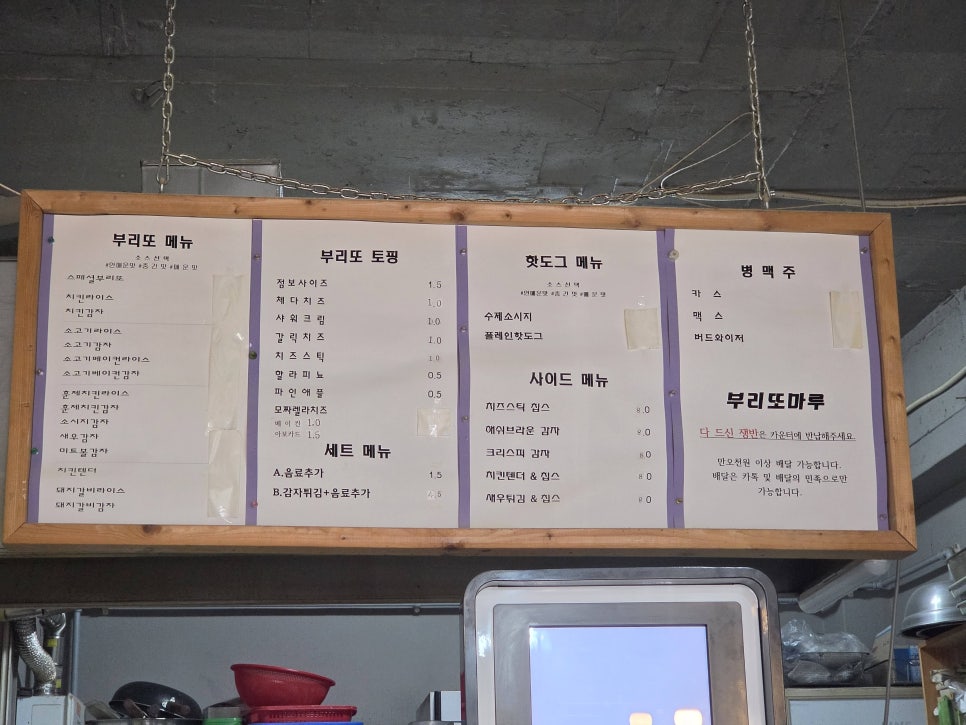 부리또 메뉴
소스선택
#안매운맛 #중간맛 #매운맛
스페셜부리또
치킨라이스
치킨감자
소고기라이스
소고기감자
소고기베이컨라이스
소고기베이컨감자
훈제치킨라이스
훈제치킨감자
소시지감자
새우감자
미트볼감자
치킨텐더
돼지갈비라이스
돼지갈비감자
부리또 토핑
점보사이즈 1.5
체다치즈 1.0
사워크림 1.0
갈릭치즈 1.0
치즈스틱 1.0
할라피뇨 0.5
파인애플 0.5
모짜렐라치즈
베이컨 1.0
아보카도 1.5
세트 메뉴
A.음료추가 1.5
B.감자튀김+음료추가
핫도그 메뉴
소스선택
#안매운맛 #중간맛 #매운맛
수제소시지
플레인핫도그
사이드 메뉴
치즈스틱 칩스 8.0
해쉬브라운 감자 8.0
크리스피 감자 8.0
치킨텐더 & 칩스 8.0
새우튀김 & 칩스 8.0
병맥주
카스
맥스
버드와이저
부리또마루
다 드신 쟁반은 카운터에 반납해주세요.
만오천원 이상 배달 가능합니다.
배달은 카톡 및 배달의 민족으로만
가능합니다.